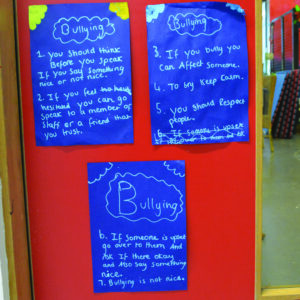 Bullying
1. you should think
Before you speak
If you say something
nice or not nice.
2. If you feel too
you can go
speak to a member of
staff or a friend that
you trust.
Bullying
3. If you bully you
Can Affect someone.
4. To try keep Calm.
5. you should Respect
people.
6. If someone is upset
Bullying
6. If someone is upset
go over to them And
ask If there okay
and Also say something
nice.
7. Bullying is not nice.